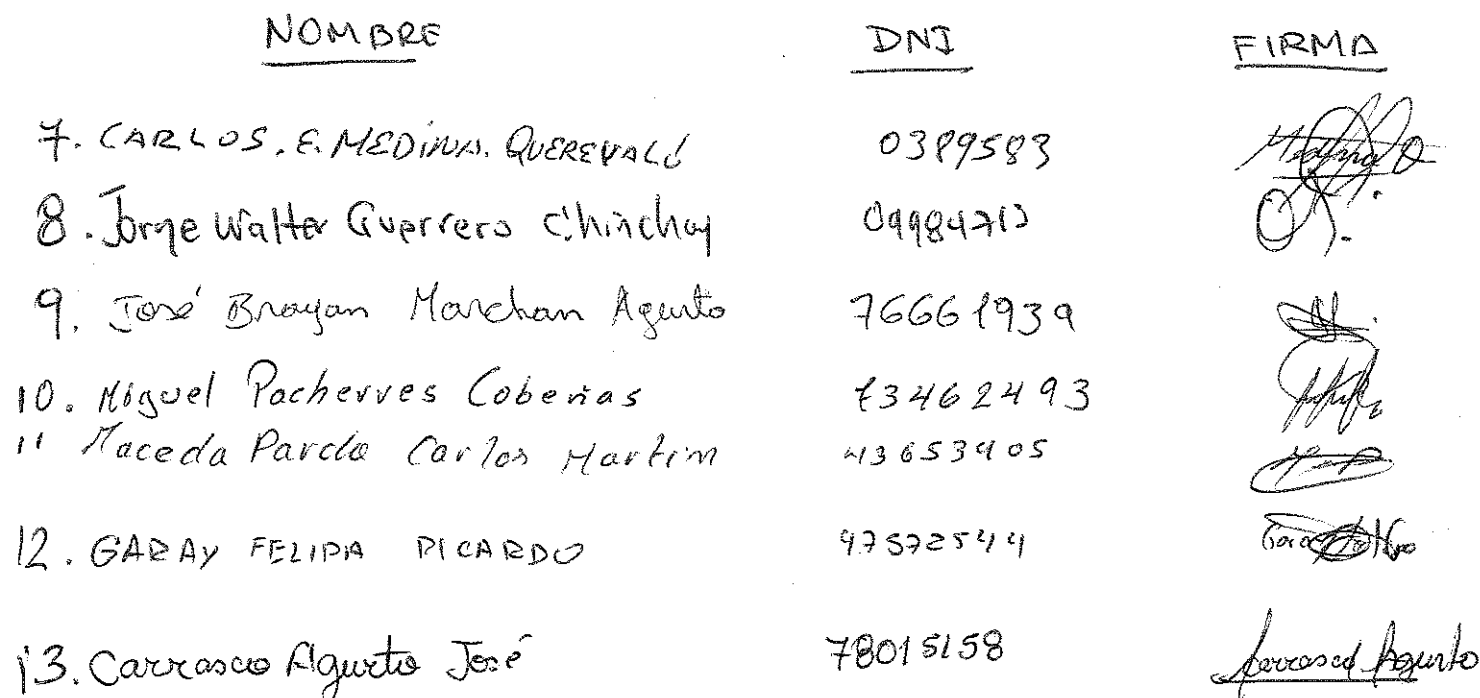 NOMBRE DNI FIRMA
7. CARLOS. E. MEDINA. QUEREVALÚ 0389583 Medina Q
8. Jorge Walter Guerrero Chinchay 09984712
9. José Brayan Marchan Agurto 76661939
10. Miguel Pacherres Cobeñas 73462493
11 Maceda Pardo Carlos Martim 43653905
12. GARAY FELIPA PICARDO 47572544
13. Carrasco Agurto José 78015158 Carrasco Agurto